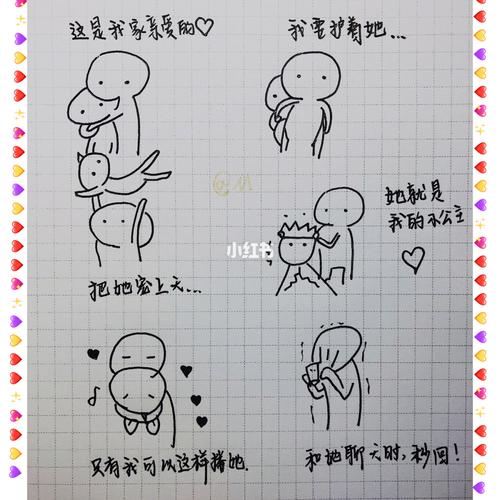 这是我家亲爱的♡
我要护着她...
把她宠上天...
她就是
我的小公主
♡
小红书
只有我可以这样搂她.
和她聊天时,秒回!